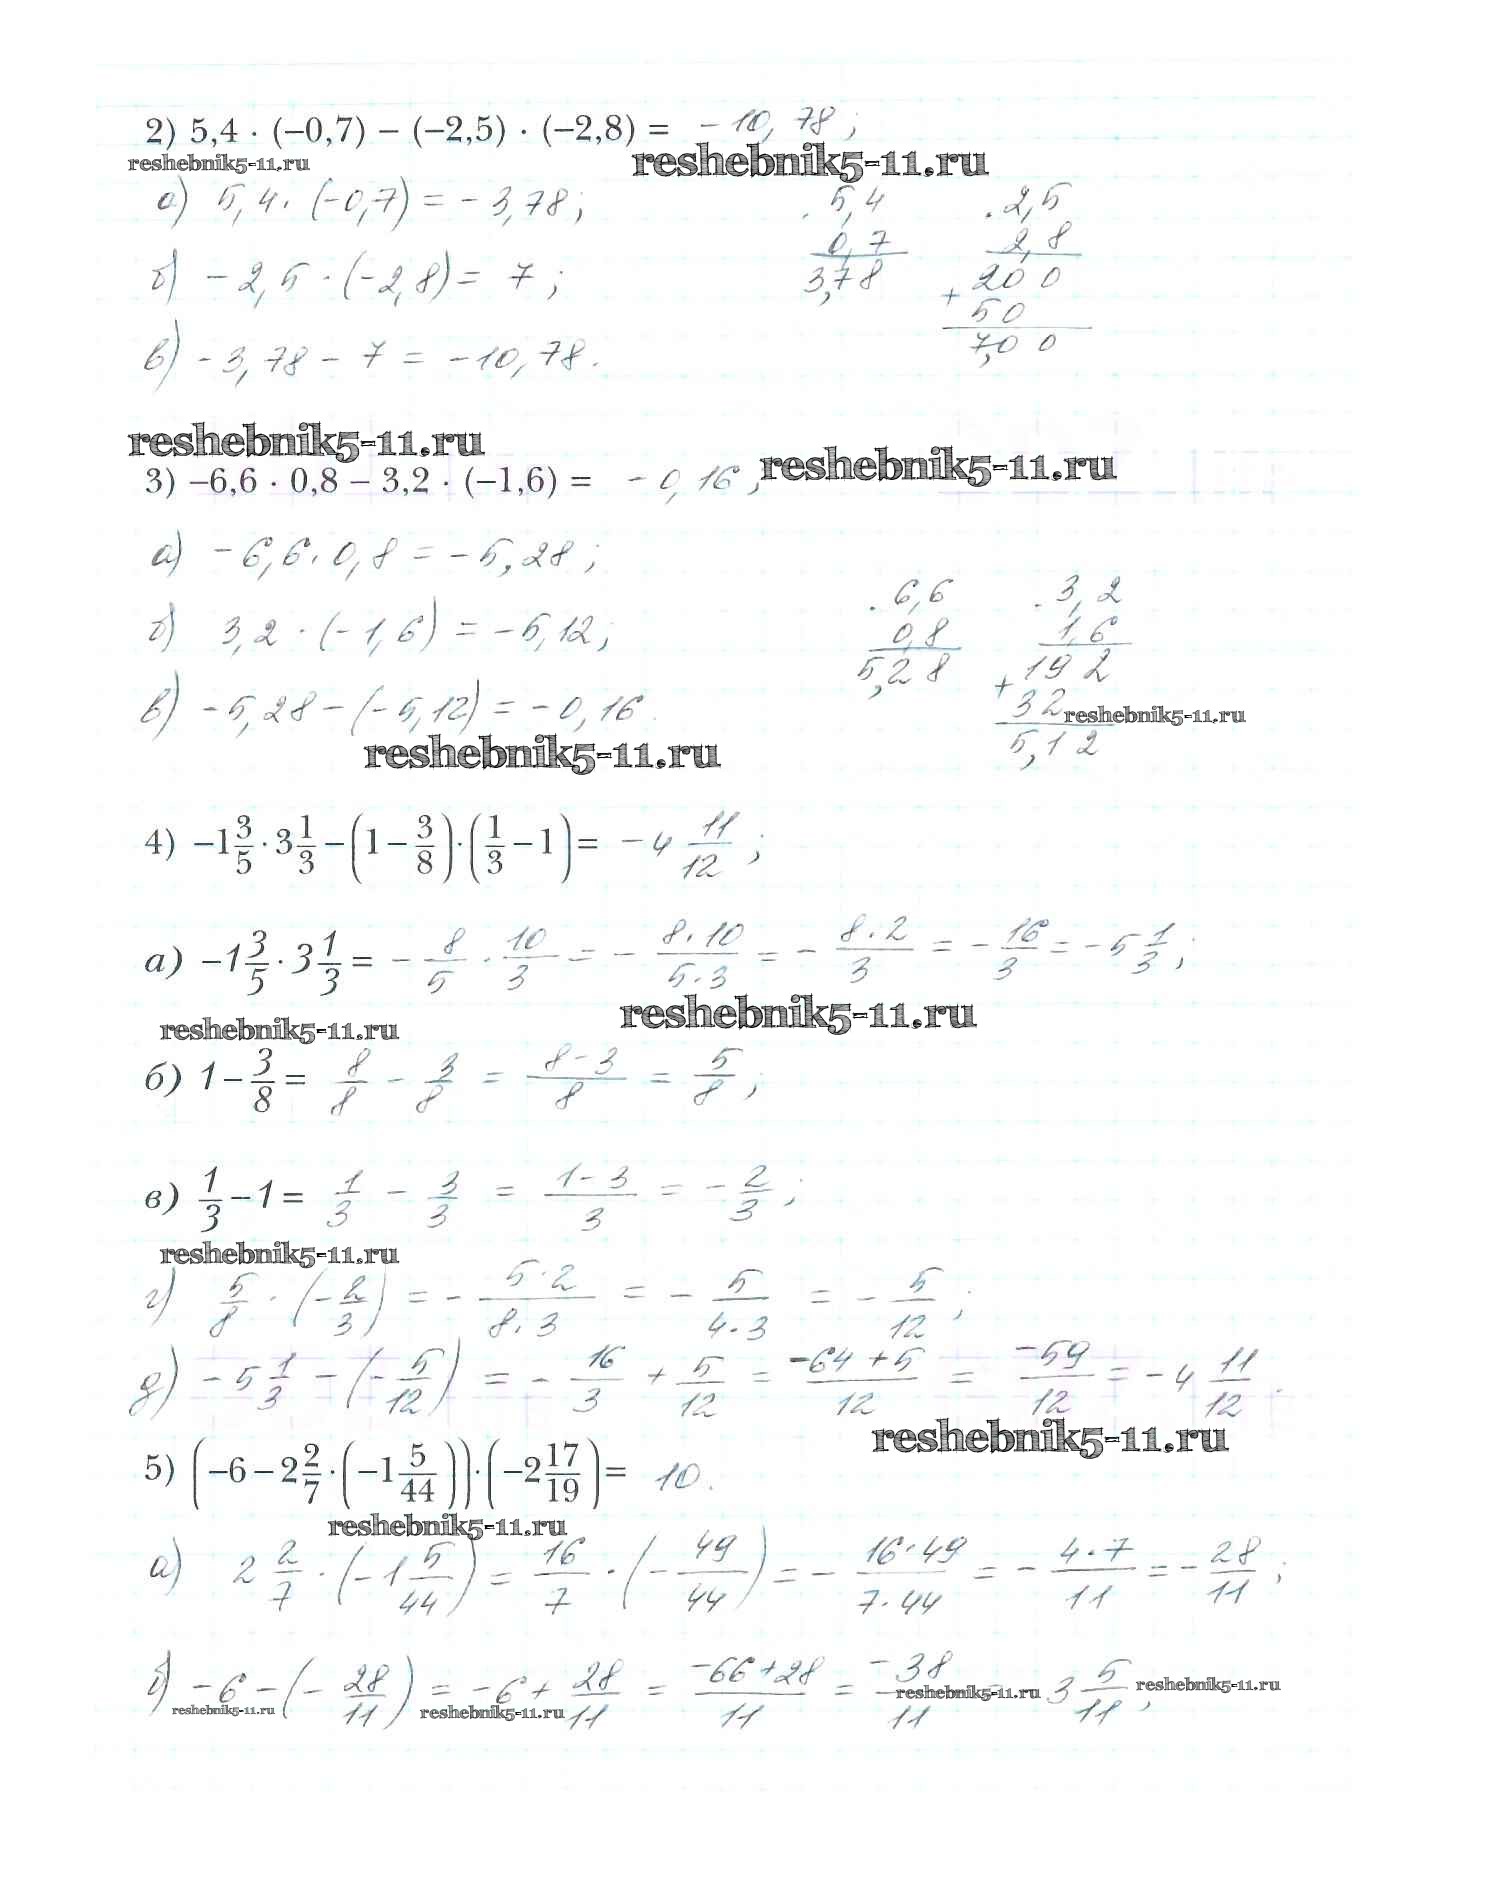 2) 5,4 · (–0,7) – (–2,5) · (–2,8) = – 10,78;
reshebnik5-11.ru reshebnik5-11.ru
а) 5,4 · (–0,7) = – 3,78;
· 5,4 · 2,5
0,7 2,8
3,78 200
б) – 2,5 · (–2,8) = 7;
+ 50
7,00
в) – 3,78 – 7 = – 10,78.
reshebnik5-11.ru reshebnik5-11.ru
3) –6,6 · 0,8 – 3,2 · (–1,6) = – 0,16;
а) – 6,6 · 0,8 = – 5,28;
· 6,6 · 3,2
0,8 1,6
5,28 192
б) 3,2 · (–1,6) = – 5,12;
+ 32 reshebnik5-11.ru
5,12
в) – 5,28 – (– 5,12) = – 0,16.
reshebnik5-11.ru
4) –1 3/5 · 3 1/3 – (1 – 3/8) · (1/3 – 1) = – 4 11/12;
а) –1 3/5 · 3 1/3 = – 8/5 · 10/3 = – 8·10/5·3 = – 8·2/3 = – 16/3 = – 5 1/3;
reshebnik5-11.ru reshebnik5-11.ru
б) 1 – 3/8 = 8/8 – 3/8 = 8–3/8 = 5/8;
в) 1/3 – 1 = 1/3 – 3/3 = 1–3/3 = – 2/3;
reshebnik5-11.ru
г) 5/8 · (– 2/3) = – 5·2/8·3 = – 5/4·3 = – 5/12;
д) – 5 1/3 – (– 5/12) = – 16/3 + 5/12 = –64+5/12 = –59/12 = – 4 11/12.
reshebnik5-11.ru
5) (–6 – 2 2/7 · (–1 5/44)) · (–2 17/19) = 10.
reshebnik5-11.ru
а) 2 2/7 · (–1 5/44) = 16/7 · (– 49/44) = – 16·49/7·44 = – 4·7/11 = – 28/11;
б) – 6 – (– 28/11) = – 6 + 28/11 = –66+28/11 = –38/11 3 5/11;
reshebnik5-11.ru reshebnik5-11.ru reshebnik5-11.ru reshebnik5-11.ru